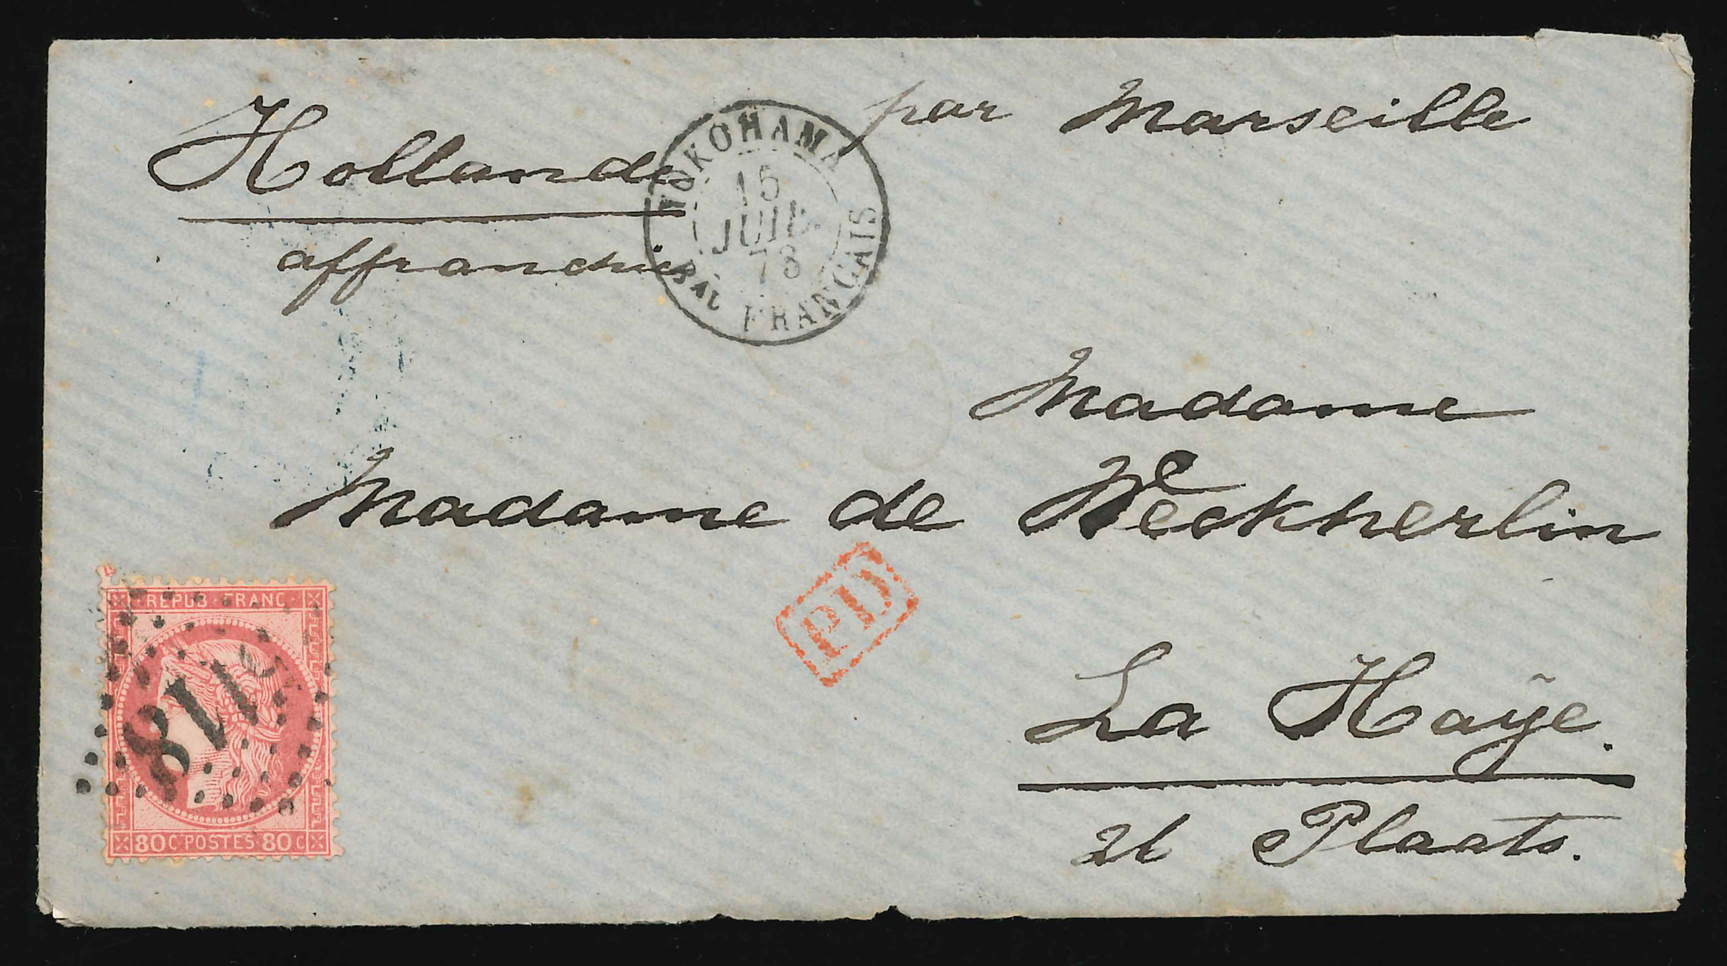 par Marseille
Hollande
affranchie
YOKOHAMA
15
JUIL.
73
Bau FRANCAIS
Madame
Madame de Weckherlin
PD
La Haÿe.
21 Plaats.
REPUB. FRANC.
5118
80 C POSTES 80 C